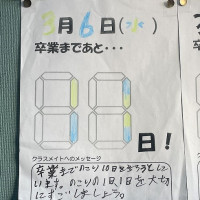 3月6日(水)
卒業まであと・・・
11日!
クラスメイトへのメッセージ
卒業までのこり10日をきろうとして
います。のこりの1日、1日を大切
にすごしましょう。